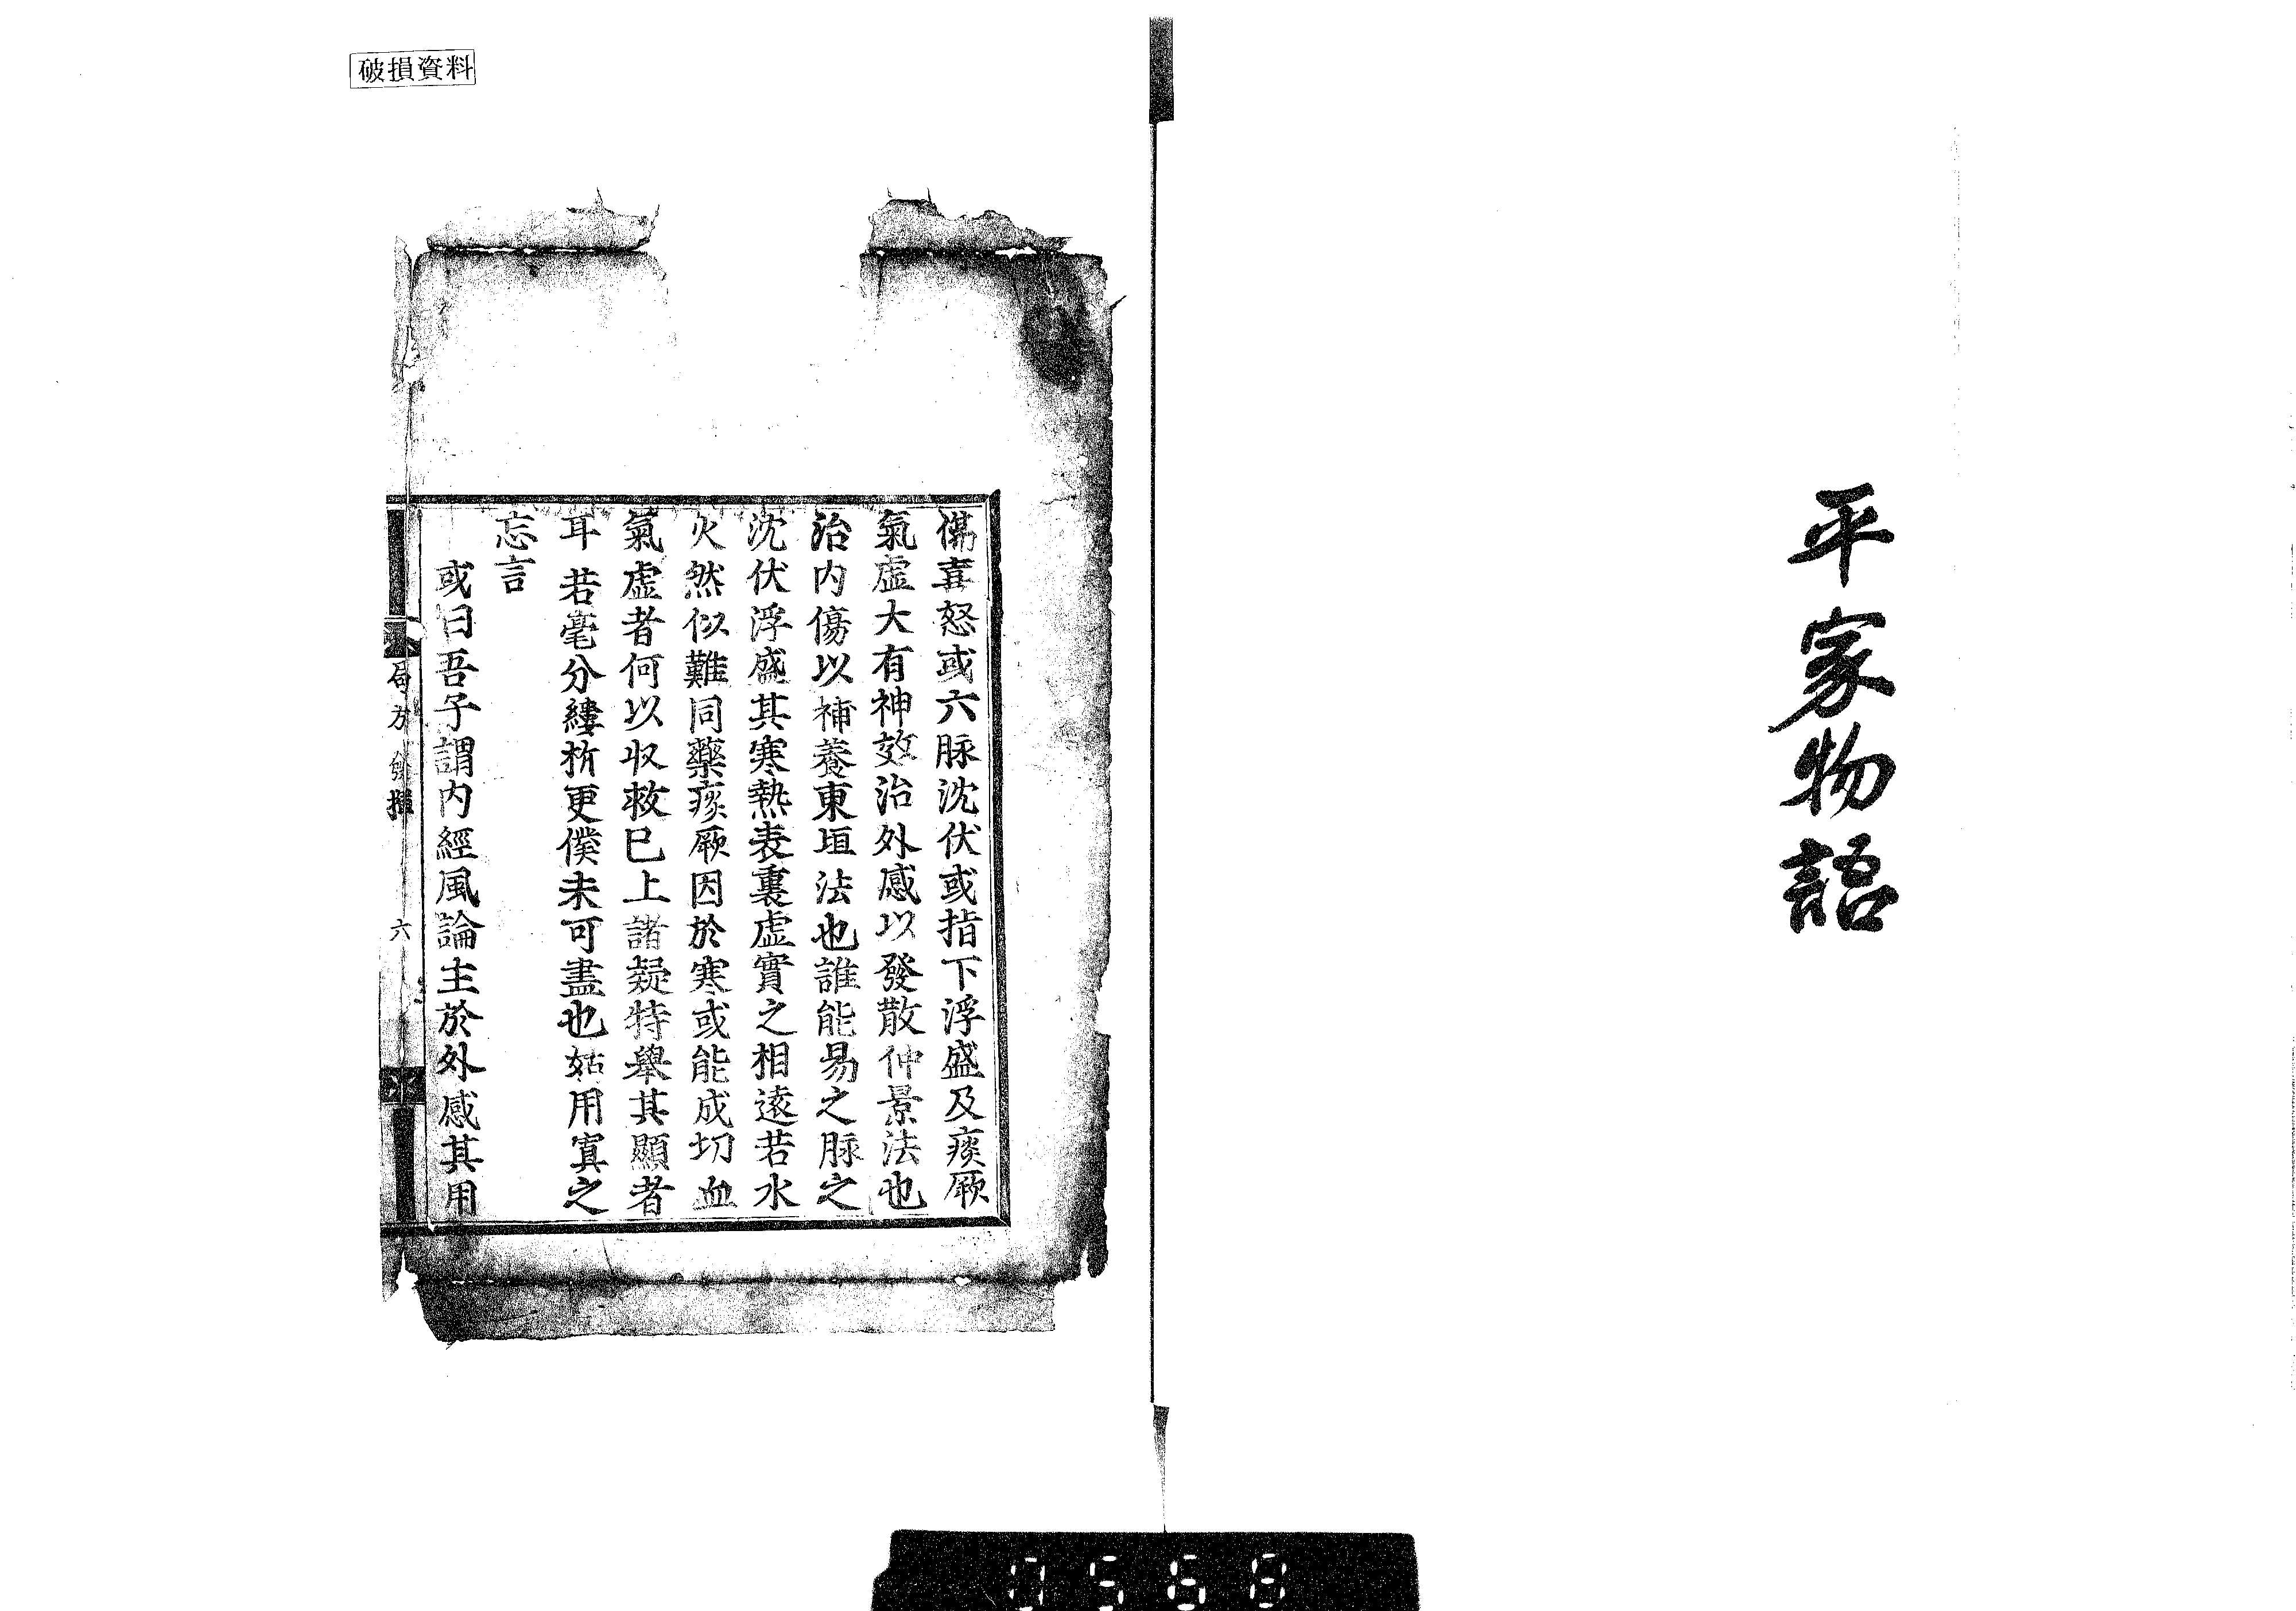 平家物語
破損資料
僃喜怒或六脉沈伏或指下浮盛及痰厥
氣虛大有神效治外感以發散仲景法也
治內傷以補養東垣法也誰能易之脉之
沈伏浮盛其寒熱表裏虛實之相遠若水
火然似難同藥痰厥因於寒或能成切血
氣虛者何以収救已上諸疑特舉其顯者
耳若毫分縷析更僕未可盡也姑用寘之
忘言
或曰吾子謂內經風論主於外感其用
局方發揮 六
0568